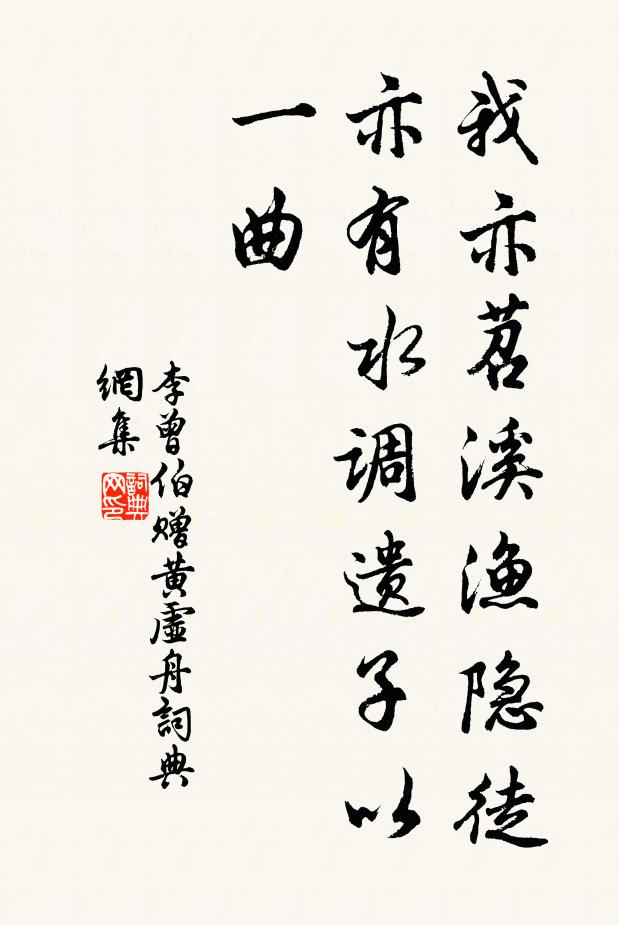 我亦苕溪渔隐徒
亦有水调遗子以
一曲
李曾伯赠黄虚舟詞典
網集
詞典
网印